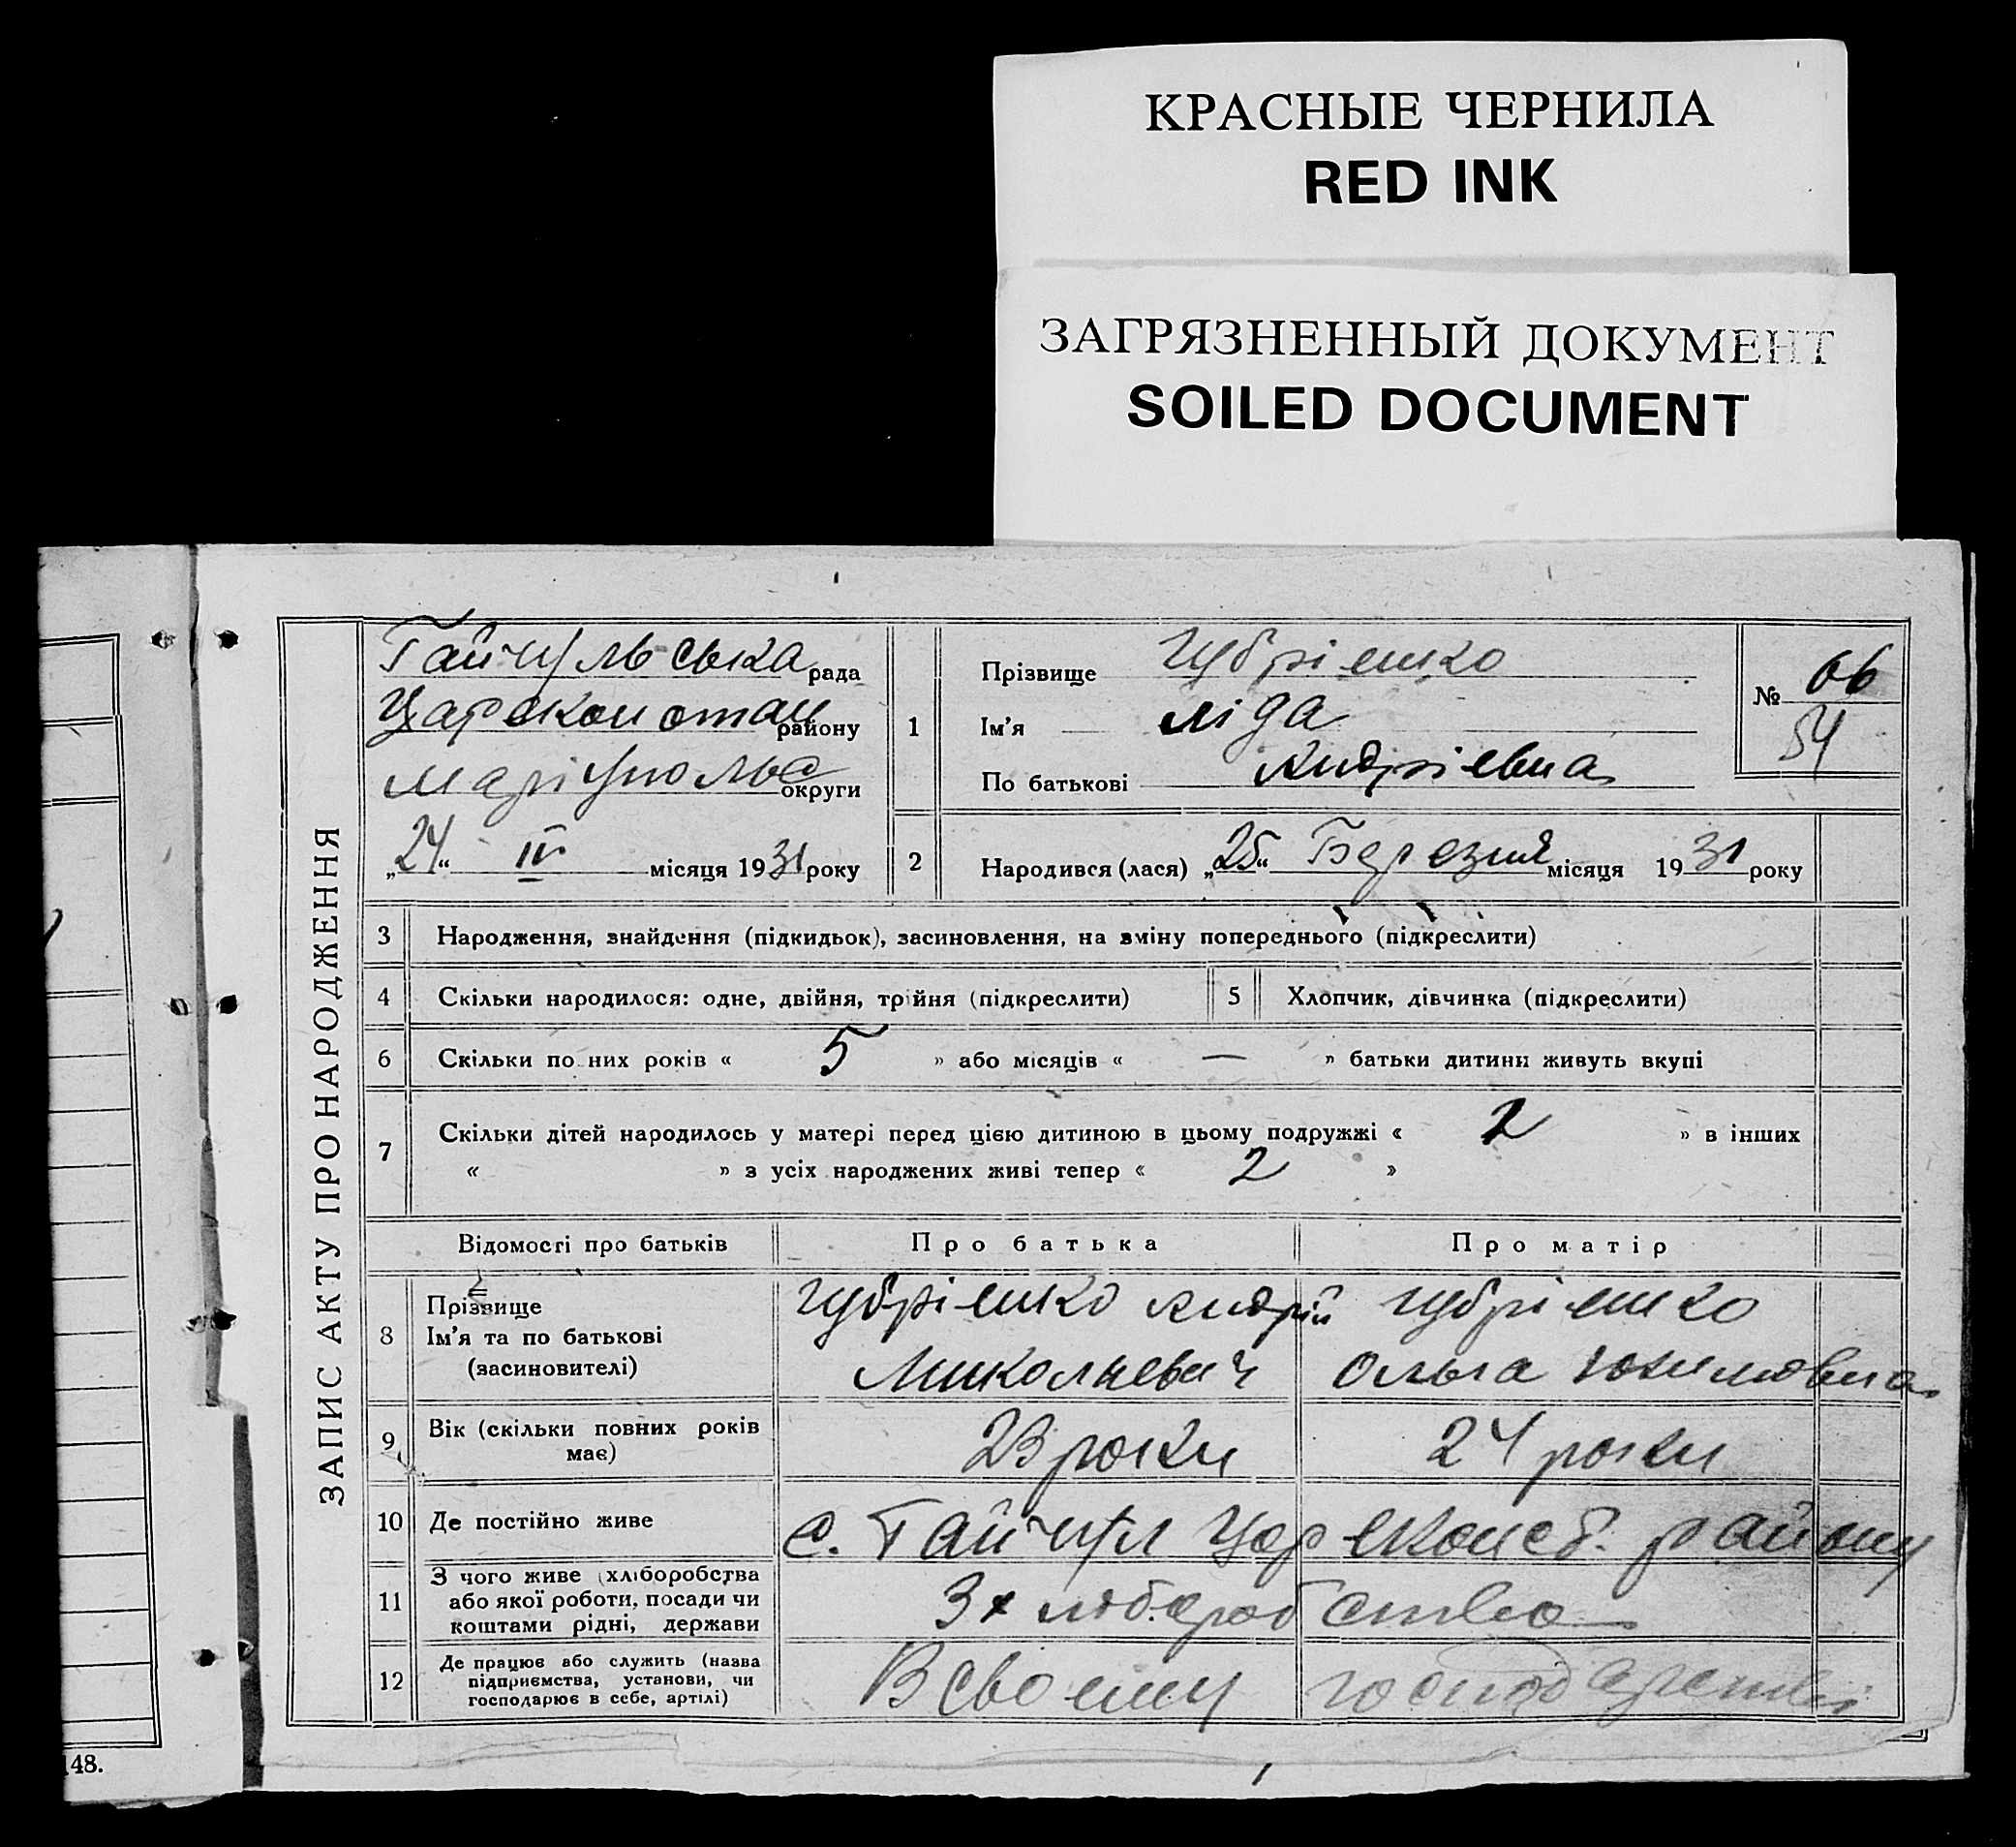 КРАСНЫЕ ЧЕРНИЛА
RED INK
ЗАГРЯЗНЕННЫЙ ДОКУМЕНТ
SOILED DOCUMENT
ЗАПИС АКТУ ПРО НАРОДЖЕННЯ
Гайчульська рада
Царекон район у
Маріуполь округи
„24“ IV місяця 1931 року
1
Прізвище Чубрієнко
Ім'я Ліда
По батькові Андрієвна
№ 66
54
2 Народився (лася) „25“ Березня місяця 1931 року
3 Народження, знайдення (підкидьок), засиновлення, на зміну попереднього (підкреслити)
4 Скільки народилося: одне, двійня, трійня (підкреслити) 5 Хлопчик, дівчинка (підкреслити)
6 Скільки повних років « 5 » або місяців « — » батьки дитини живуть вкупі
7 Скільки дітей народилось у матері перед цією дитиною в цьому подружжі « 2 » в інших
« » з усіх народжених живі тепер « 2 »
Відомості про батьків Про батька Про матір
8 Прізвище
Ім'я та по батькові
(засиновителі)
Чубрієнко Андрій
Миколаєвич
Чубрієнко
Ольга
9 Вік (скільки повних років
має)
23 роки 24 роки
10 Де постійно живе с. Гайчул району
11 З чого живе (хліборобства
або якої роботи, посади чи
коштами рідні, держави
З хліборобства
12 Де працює або служить (назва
підприємства, установи, чи
господарює в себе, артілі)
В своєму господарстві
148.